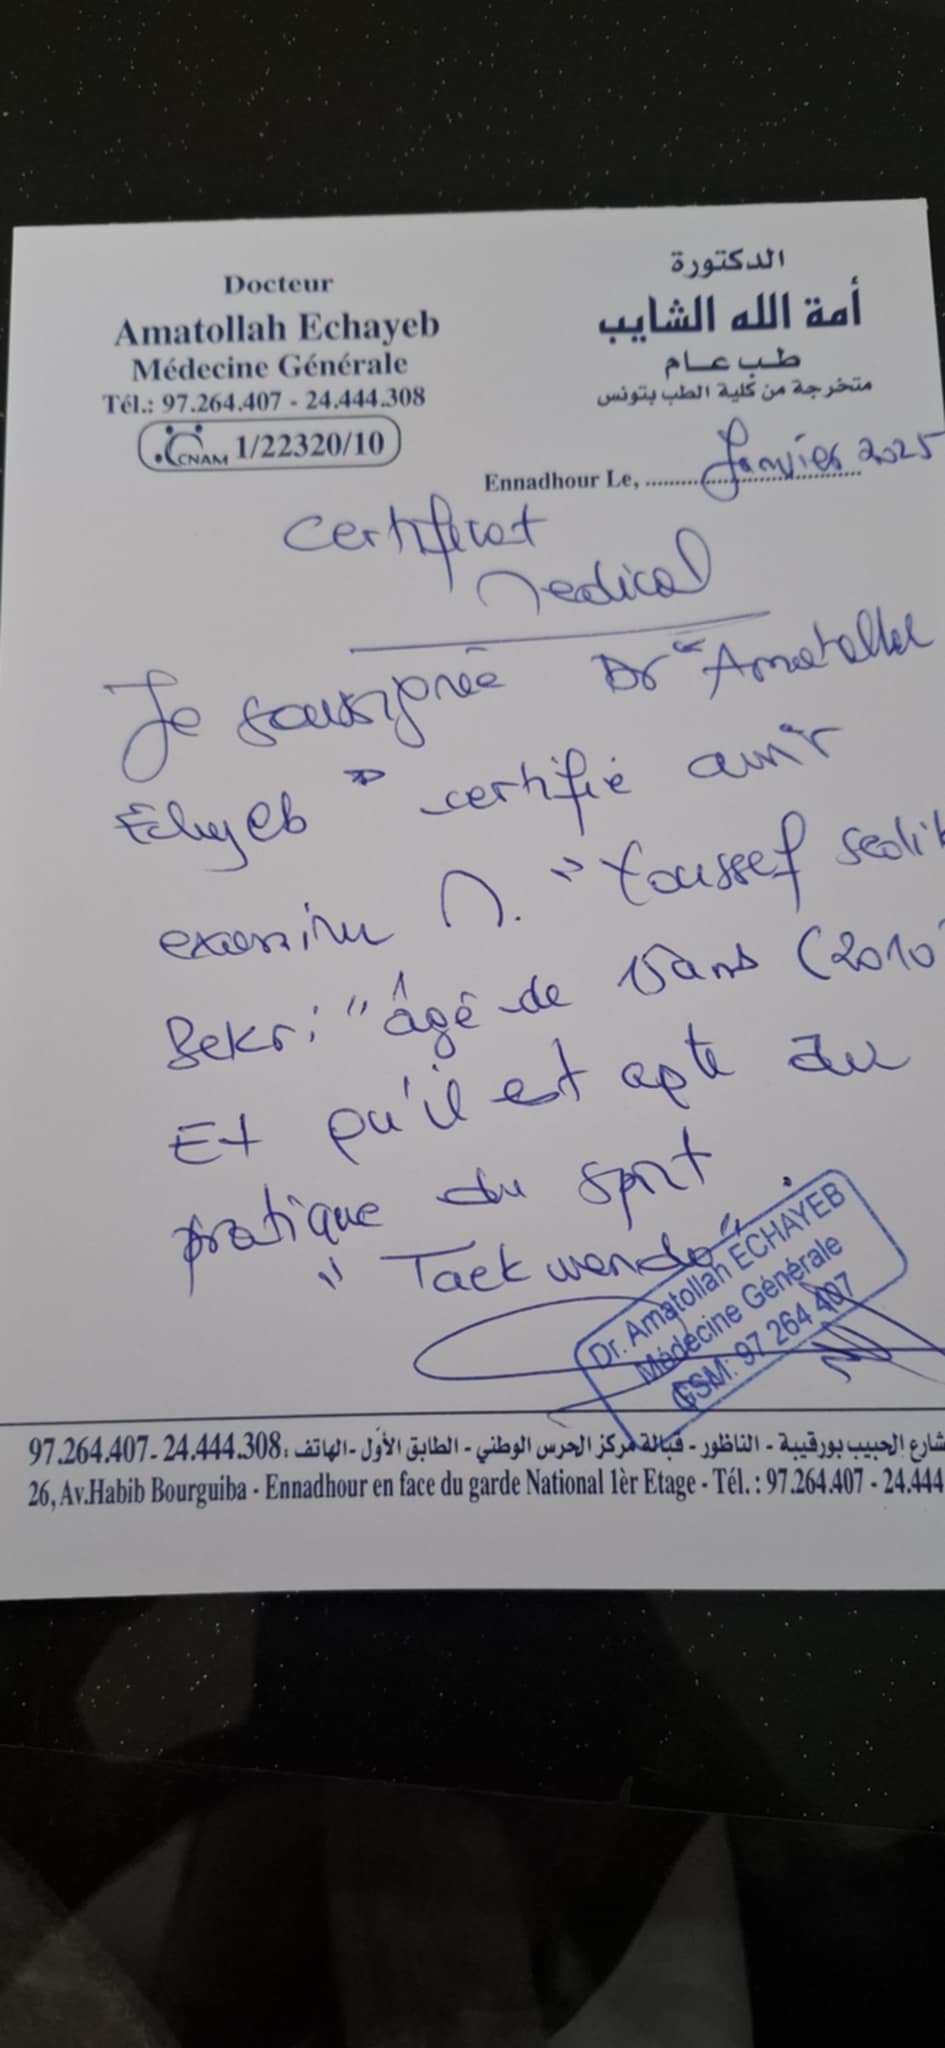 Docteur
Amatollah Echayeb
Médecine Générale
Tél.: 97.264.407 - 24.444.308
CNAM 1/22320/10
الدكتورة
أمة الله الشايب
طب عام
متخرجة من كلية الطب بتونس
Ennadhour Le, Janvier 2025
Certificat
Medical
Je soussignée Dr "Amatollah
Echyeb" certifié avoir
examiné M. "Youssef Sedik
Bekri" âgé de 15 ans (2010
Et qu'il est apte au
pratique du sport
"Taekwendo".
Dr. Amatollah ECHAYEB
Médecine Générale
GSM: 97 264 407
شارع الحبيب بورقيبة - الناظور - قبالة مركز الحرس الوطني - الطابق الأوّل - الهاتف: 97.264.407- 24.444.308
26, Av.Habib Bourguiba - Ennadhour en face du garde National 1èr Etage - Tél. : 97.264.407 - 24.444